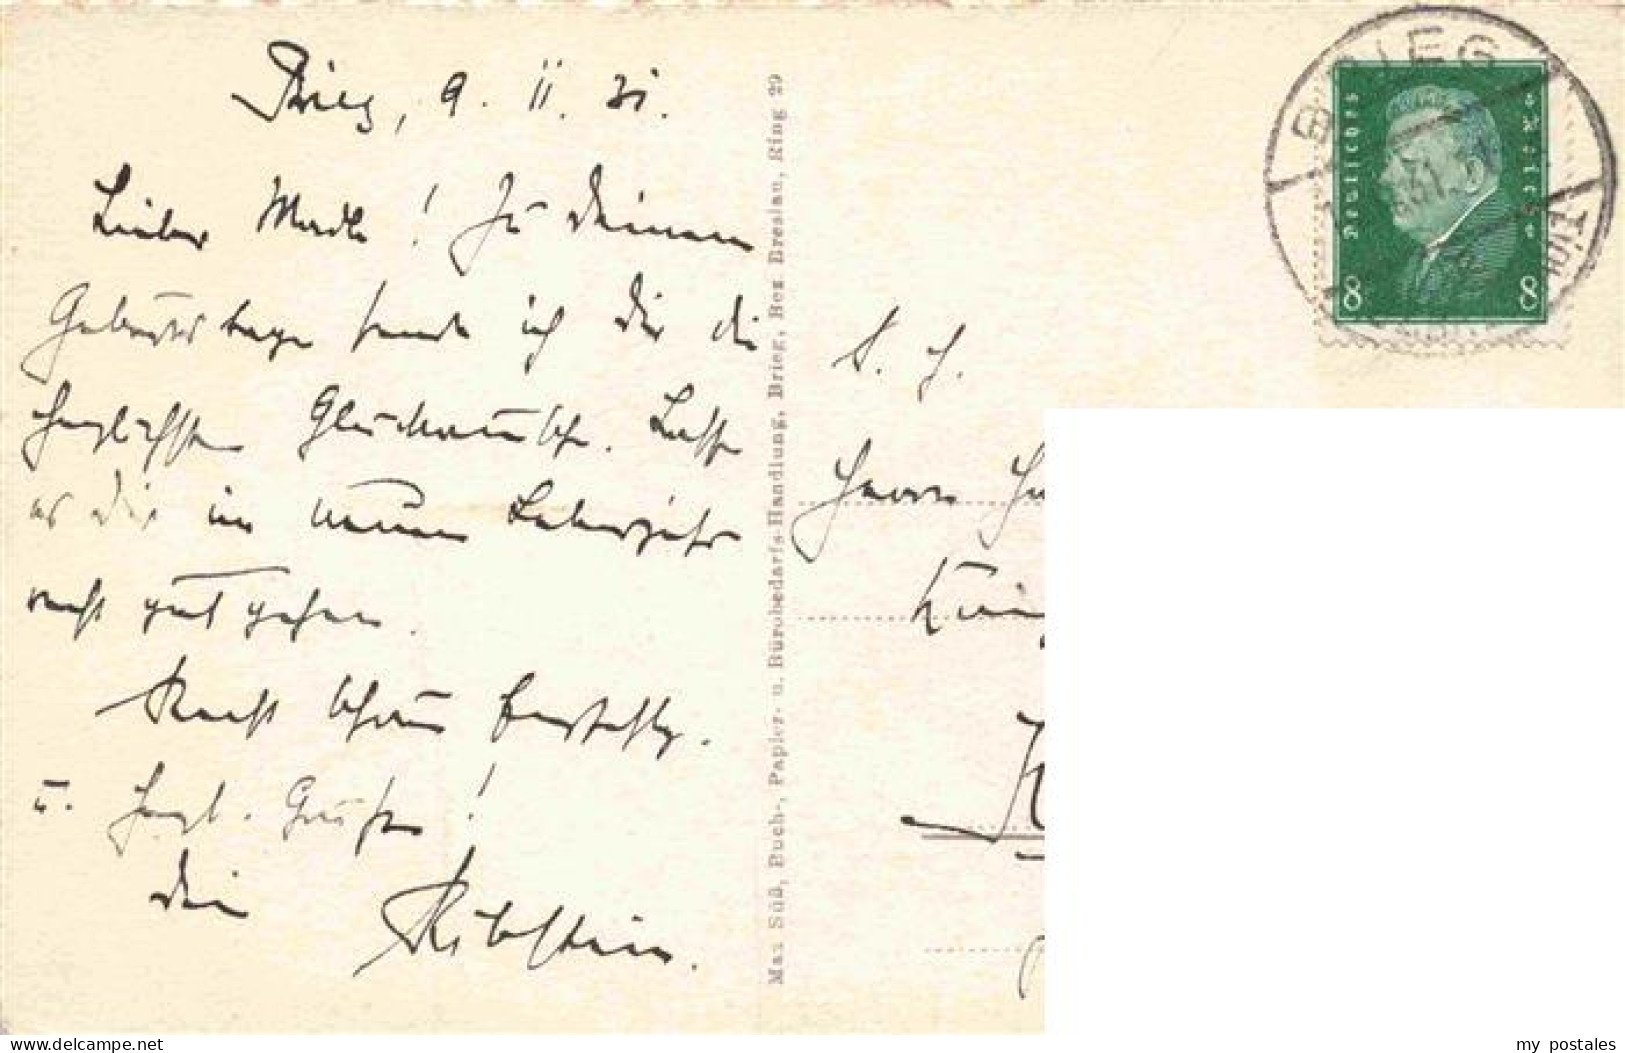 Brieg, 9. II. 31.
Lieber Madle! Zu Deinem
Geburtstage sende ich Dir die
herzlichsten Glückwünsche. Laß
es Dir im neuen Lebensjahr
recht gut gehen.
Recht schöne
u. herzl. Grüße!
Dein
Ribstein.
Max Süß, Buch-, Papier- u. Bürobedarfs-Handlung, Brieg, Bez. Breslau, Ring 29
BRIEG
Deutsches Reich
8 8
S. H.
Herrn
my postales
www.delcampe.net